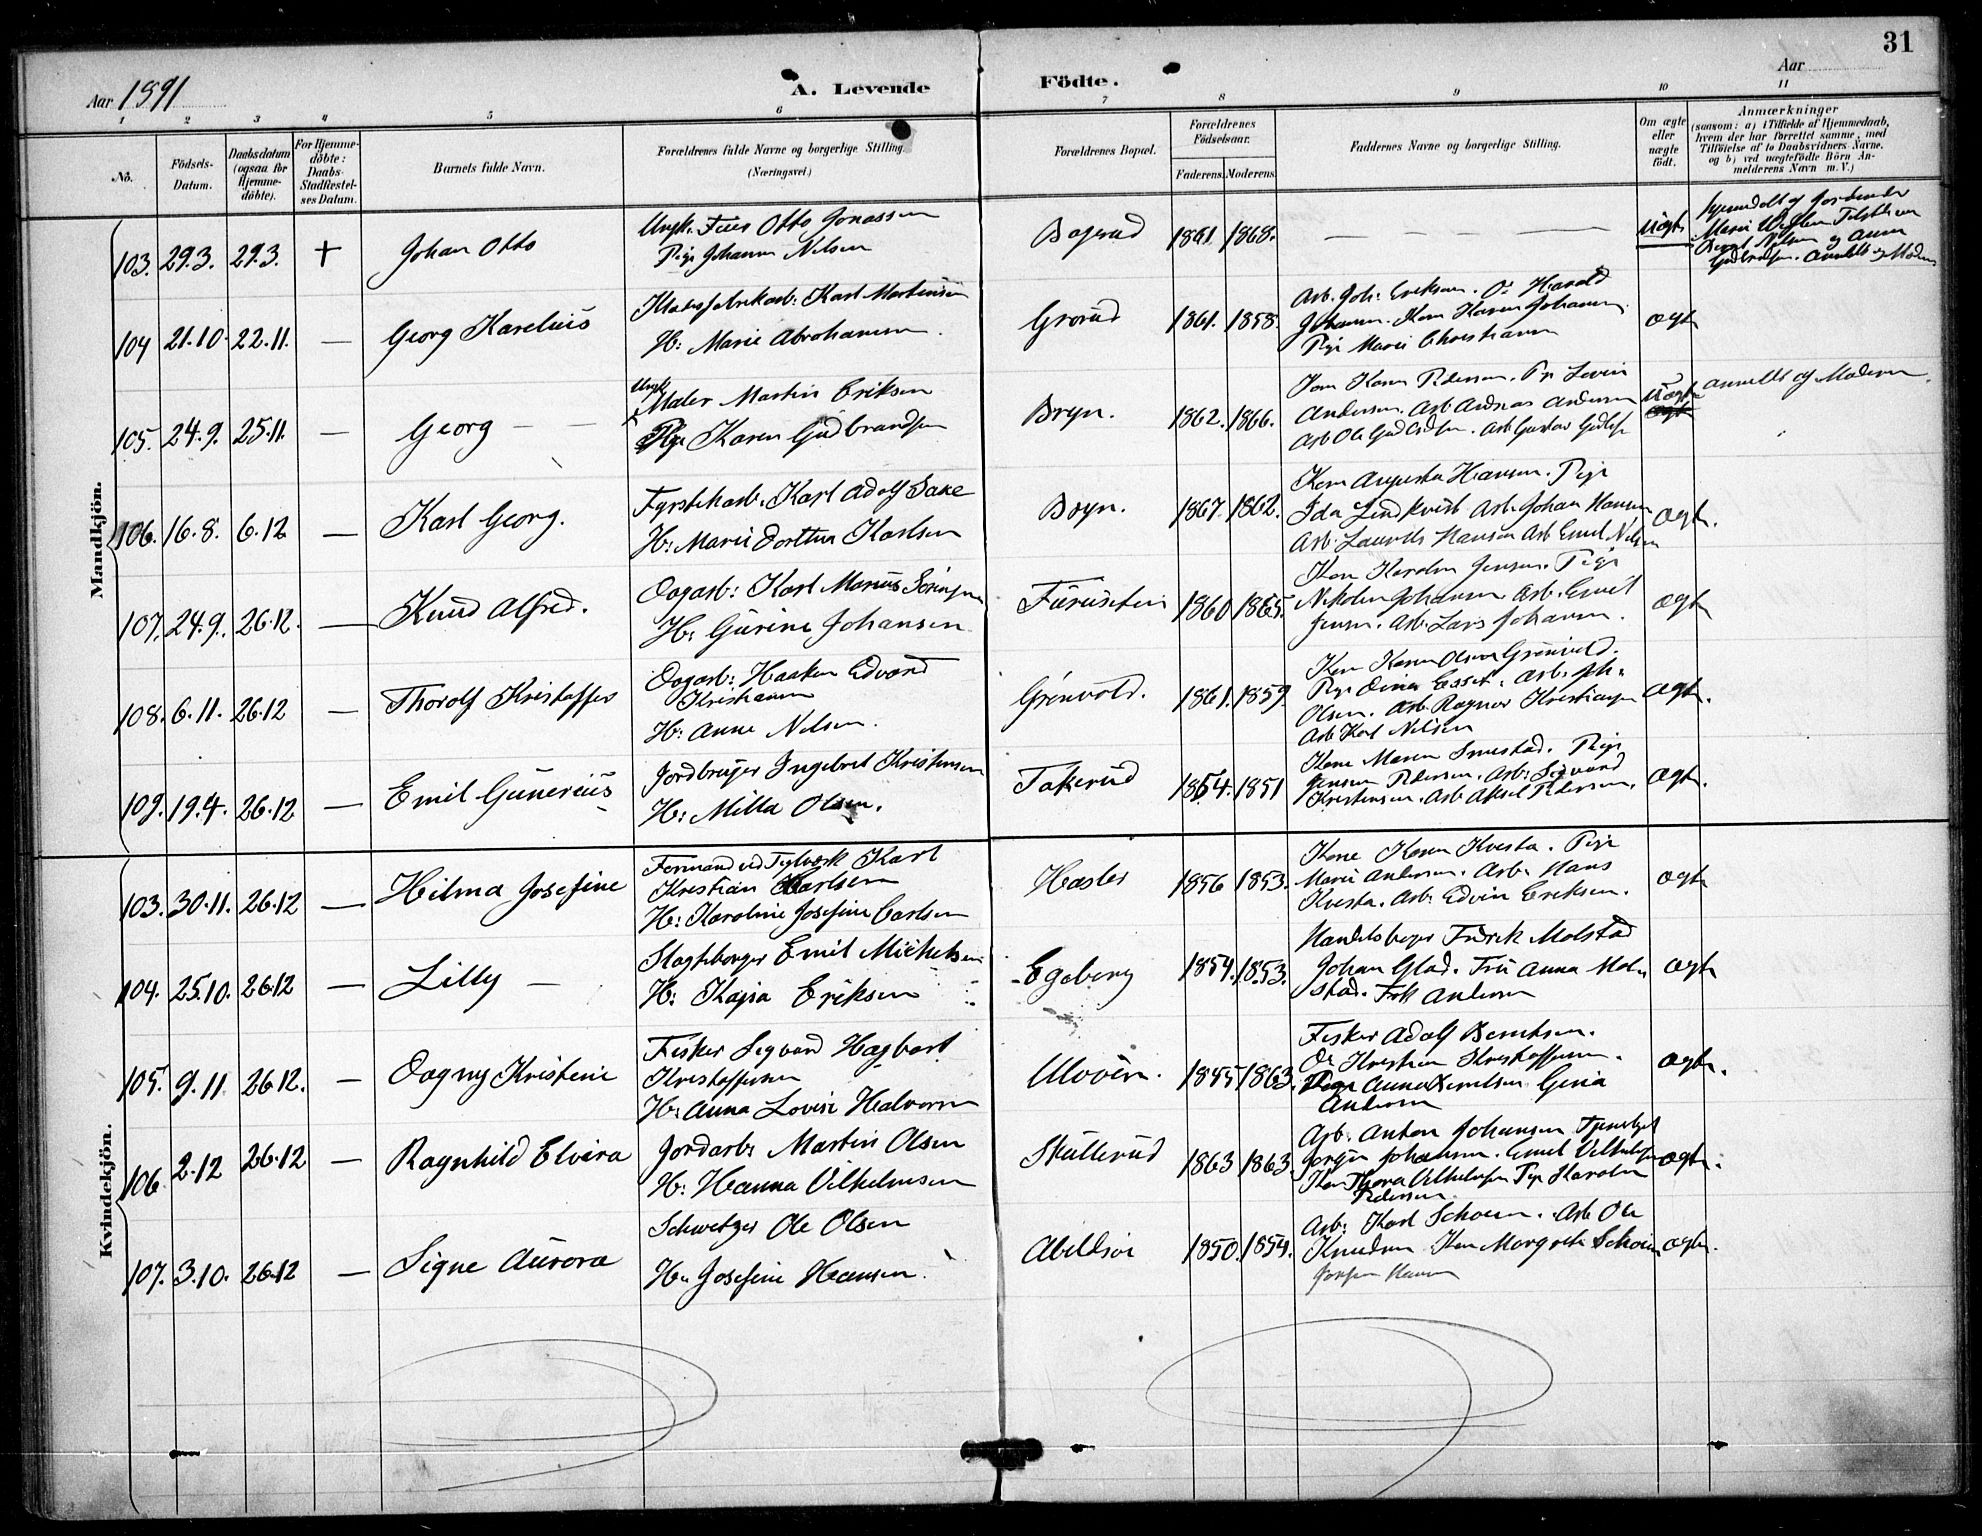 31
Aar 1891
A. Levende
Födte.
Aar
1 2 3 4 5 6 7 8 9 10 11
No.
Födsels-
Datum.
Daabsdatum
(ogsaa for
Hjemme-
döbte).
For Hjemme-
döbte:
Daabs-
Stadfæstel-
ses Datum.
Barnets fulde Navn.
Forældrenes fulde Navne og borgerlige Stilling.
(Næringsvei.)
Forældrenes Bopæl.
Forældrenes
Födselsaar.
Faderens. Moderens.
Faddernes Navne og borgerlige Stilling.
Om ægte
eller
uægte
födt.
Anmærkninger
(saasom: a) i Tilfælde af Hjemmedaab,
hvem der har forrettet samme, med
Tilföielse af to Daabsvidners Navne.
og b) ved uægtefödte Börn An-
melderens Navn m. V.)
Mandkjön.
103. 29.3. 29.3. + Johan Otto
Ungk. Otto Jonassen
Pige Johanne Nilsen
Bogerud 1861 1868. — — — — Uægte
104 21.10. 22.11. — Georg Karelius
Karl Martinsen
H: Marie Abrahamsen
Grorud 1861. 1858.
Arb. Joh. Eriksen. Harald
Johansen. Kone Karen Johansen
Pige Marie Christiansen
ægte
105. 24.9. 25.11. — Georg — —
Ungk.
Maler Martin Eriksen
Pige Karen Gudbrandsen
Bryn. 1862. 1866.
Kone Karen Pedersen. Pige Lovise
Andersen. Arb Andreas Andersen
Uægte
ægte
anmeldt af Moderen.
106. 16.8. 6.12 — Karl Georg.
Fyrstikarb. Karl Adolf
H: Marie Dorthea Karlsen
Bryn. 1867. 1862.
Kone Augusta Hansen. Pige
Ida Lindkvist Arb. Johan Hansen
Arb. Laurits Hansen Arb Emil Nilsen
ægte.
107. 24.9. 26.12. — Knud Alfred.
Dagarb: Karl Marius Sörensen
H: Gurine Johansen
Furuseten 1860 1865.
Kone Karoline Jensen. Pige
Nikoline Johansen Arb. Emil
Jensen. Arb. Lars Johansen.
ægte
108. 6.11. 26.12 — Thorolf Kristoffer
Dagarb: Haaken Edvard
Kristiansen
H: Anne Nilsen.
Grönvold. 1861. 1859.
Kone Karen Olsen Grönvold.
Pige Arb. Joh.
Olsen. Arb Ragnar Kristiansen
Arb Karl Nilsen
ægte.
109. 19.4. 26.12 — Emil Gunerius
Jordbruger Ingebret Kristensen
H: Milla Olsen.
Tokerud 1854. 1851
Kone Maren Smestad. Pige
Jensen Pedersen. Arb: Sigvard
Kristensen. Arb Aksel Pedersen.
ægte.
Kvindekjön.
103. 30.11. 26.12 — Hilma Josefine
Formand ved Teglværk Karl
Kristian Karlsen
H: Karoline Josefine Carlsen
Hasler 1856 1853.
Kone Karen Kvesta. Pige
Marie Andersen. Arb. Hans
Kvesta. Arb: Edvin Eriksen.
ægte
104. 25.10. 26.12 — Lilly —
Emil Mickelsen
H: Kajsa Eriksen
Egeberg 1854. 1853.
Fredrik Molstad
Johan Glad. Fru Anna Mol-
stad. Frk Andersen
ægte
105. 9.11 26.12. — Dagny Kristine
Fisker Sigvard Hagbart
Kristoffersen
H: Anna Lovise Halvorsen
Ulvöen. 1855 1863.
Fisker Adolf Berntsen.
Kristian Kristoffersen.
Pige Anna Berntsen
Andersen
ægte.
106. 2.12 26.12 — Ragnhild Elvira
Jordarb: Martin Olsen
H: Hanna Vilhelmsen
Skullerud 1863 1863.
Arb. Anton Johansen
Jörgen Johansen. Emil Vilhelmsen
Kone Thora Vilhelmsen Pige Karoline
Pedersen.
ægte.
107. 3.10. 26.12 — Signe Aurora
Schweizer Ole Olsen
H: Josefine Hansen.
Abildsö 1850. 1854.
Arb: Karl Schoen. Arb Ole
Knudsen Kone Margrethe Schoen
ægte.